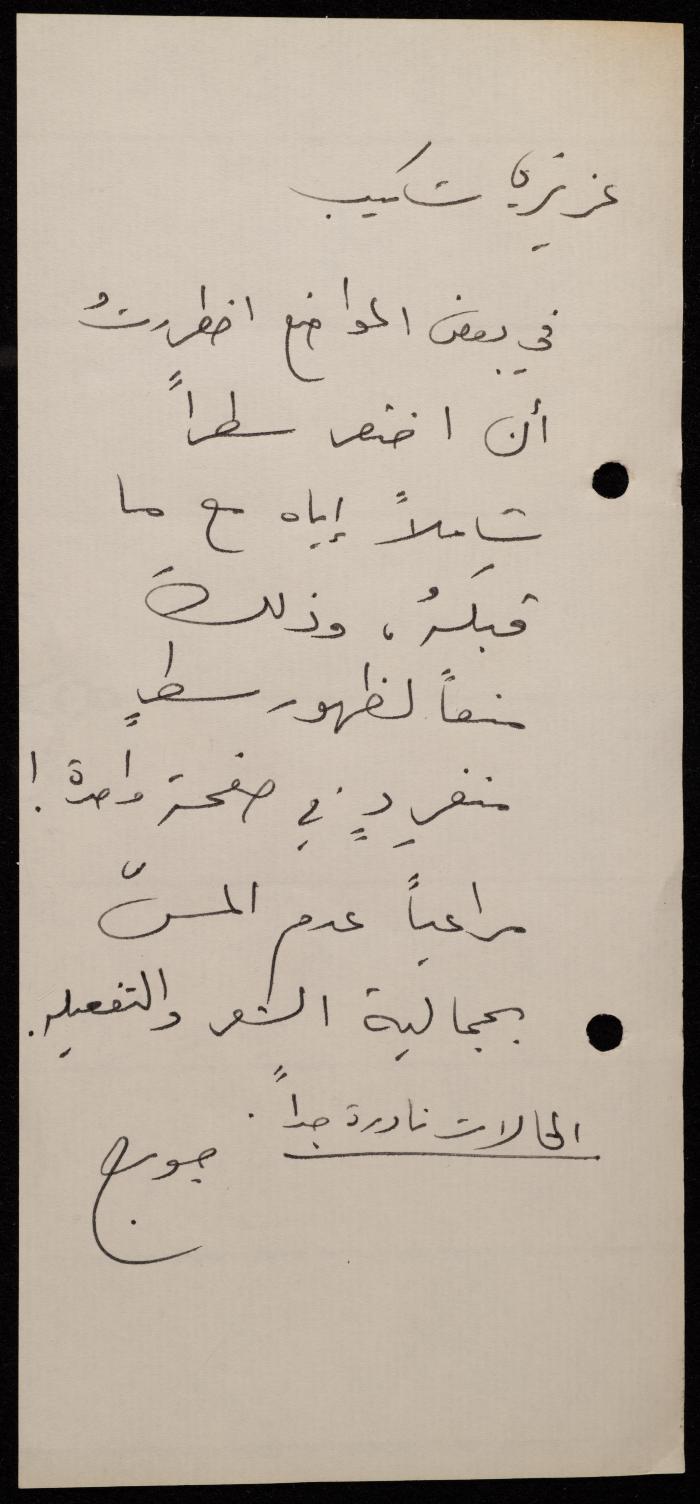 عزيزي شكيب
في بعض المواضع اضطررتُ
أن اختصر سطراً
شاملاً إياه مع ما
قبلَهُ، وذلكَ
منعاً لظهور سطرٍ
منفرِدٍ في صفحة واحدة!
مراعياً عدم المسّ
بجمالية الشعر والتفعيله.
الحالات نادرة جداً.
جورج